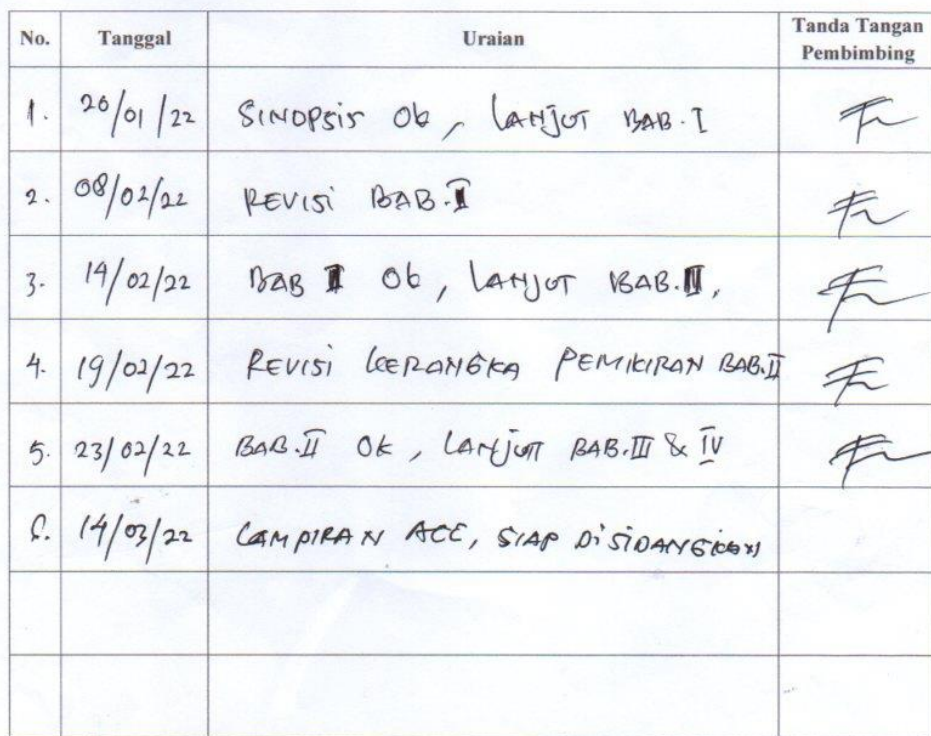 No. Tanggal Uraian Tanda Tangan Pembimbing
1. 20/01/22 SINOPSIS Ok, LANJUT BAB. I
2. 08/02/22 REVISI BAB. I
3. 14/02/22 BAB I Ok, LANJUT BAB. II,
4. 19/02/22 REVISI KERANGKA PEMIKIRAN BAB. II
5. 23/02/22 BAB. II OK, LANJUT BAB. III & IV
6. 14/03/22 LAMPIRAN ACC, SIAP DISIDANGKAN